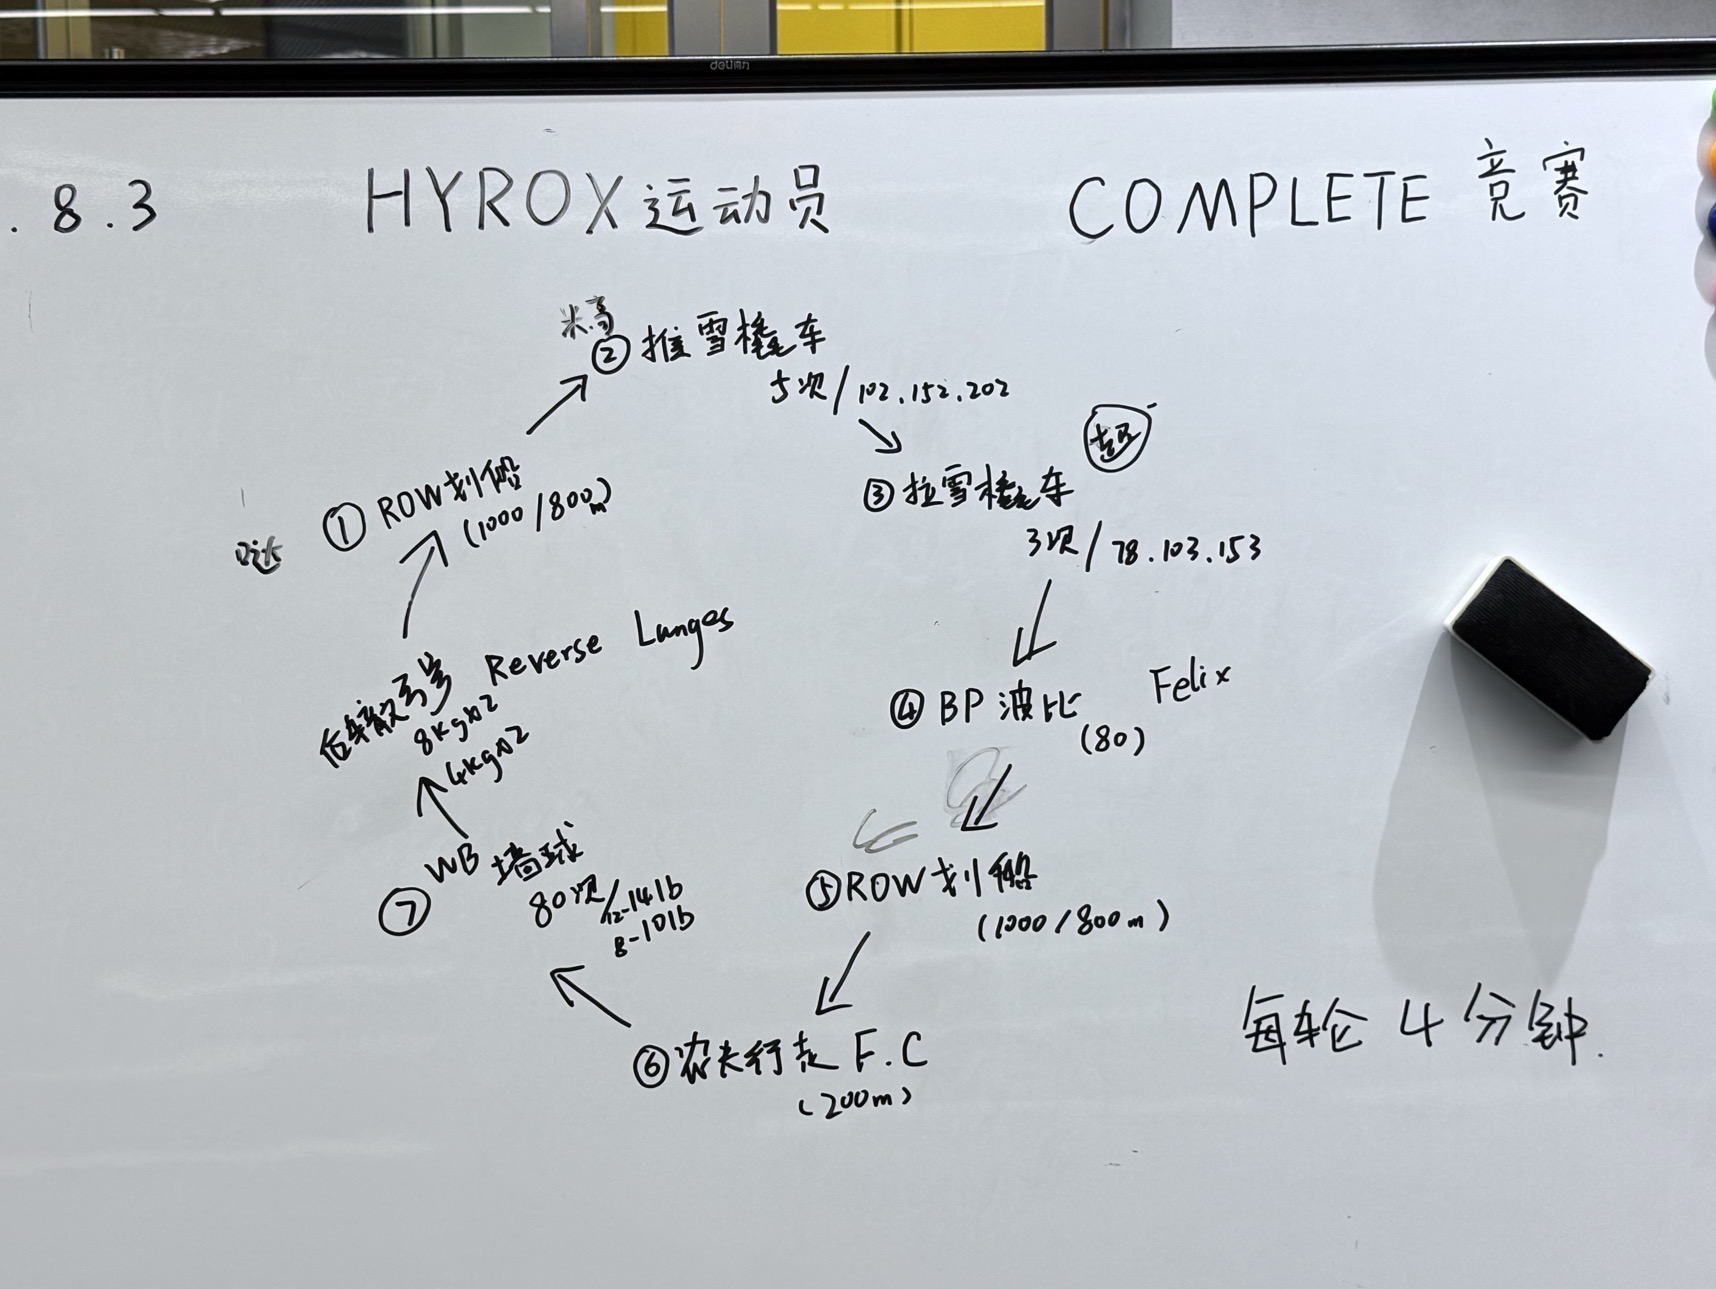 deli 得力
. 8.3 HYROX运动员 COMPLETE 竞赛
米高
② 推雪橇车
5次/102.152.202
超
③ 拉雪橇车
3次/78.103.153
① ROW划船
(1000/800m)
哒
Reverse Lunges
8kgx2
4kgx2
④ BP 波比 Felix
(80)
⑤ ROW 划船
(1000/800m)
⑦ WB 墙球
80次/12-14lb
8-10lb
⑥ 农夫行走 F.C
(200m)
每轮 4 分钟.